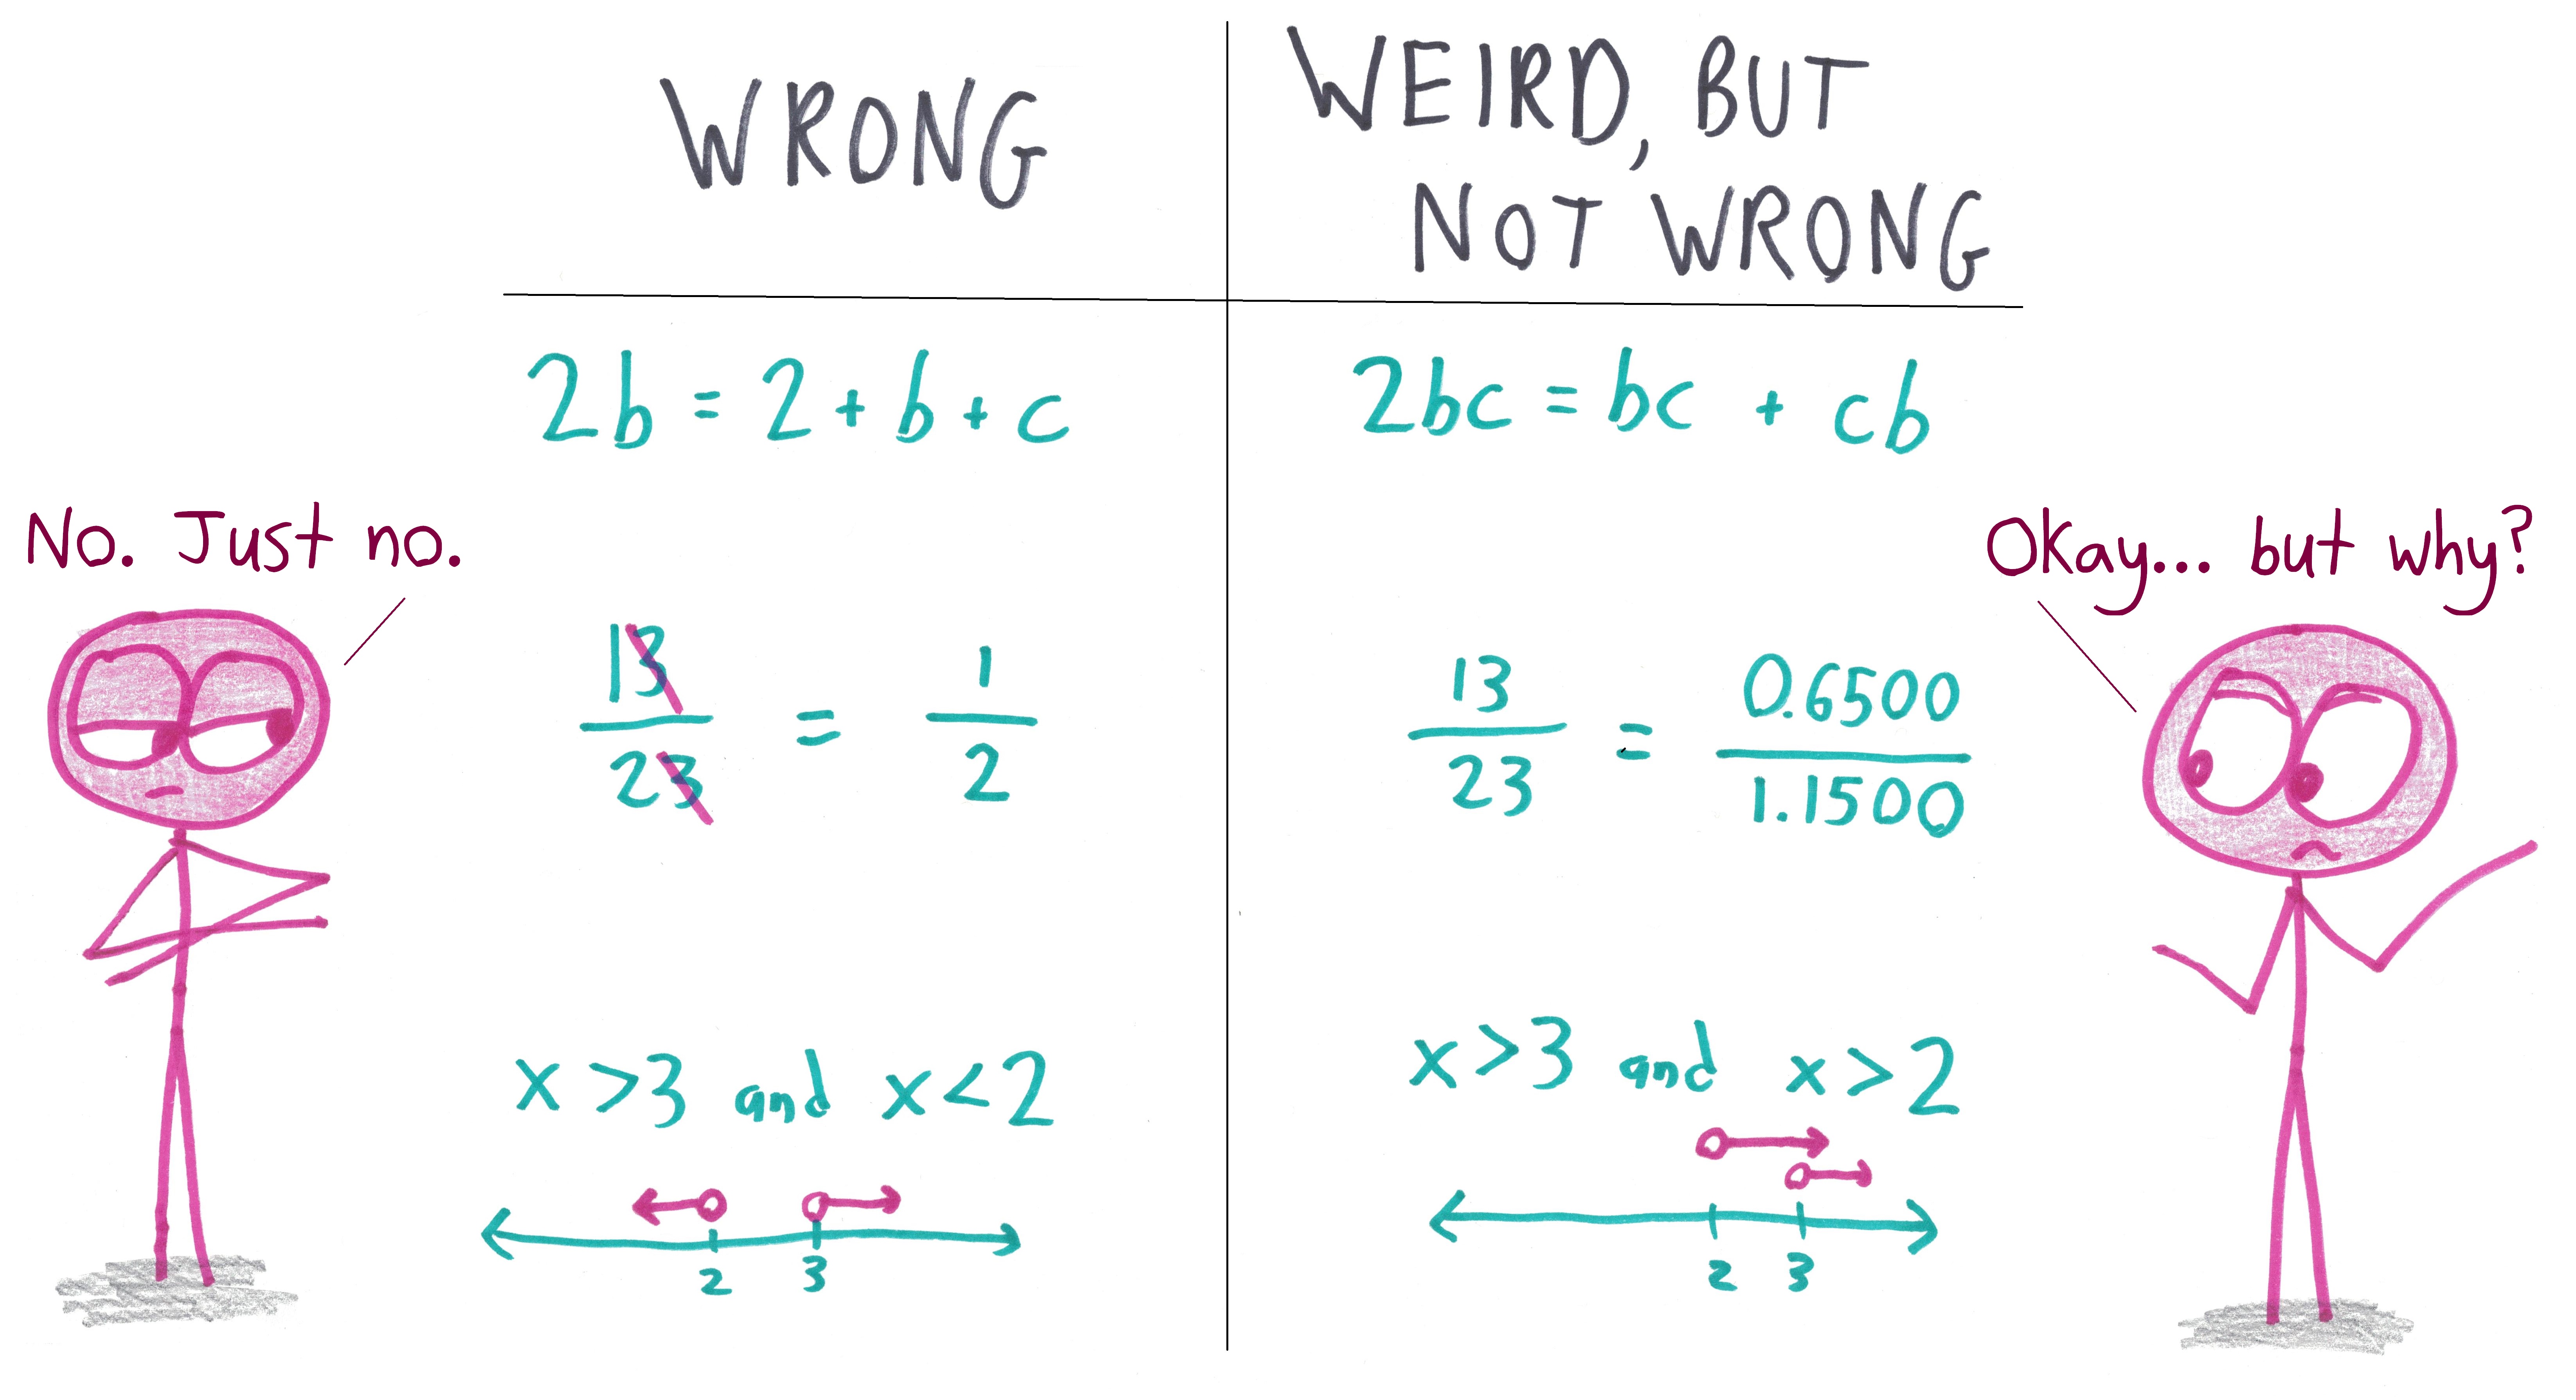 WRONG
WEIRD, BUT
NOT WRONG
2b = 2 + b + c
2bc = bc + cb
No. Just no.
Okay... but why?
13/23 = 1/2
13/23 = 0.6500/1.1500
x > 3 and x < 2
2 3
x > 3 and x > 2
2 3